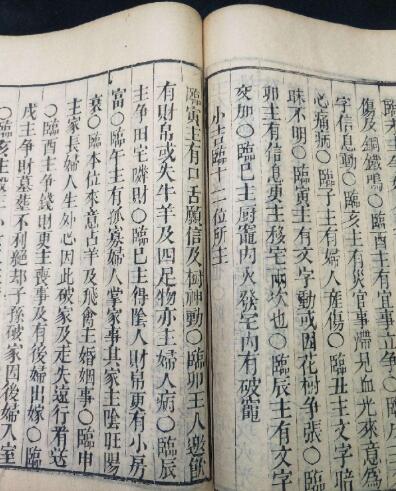 文字暗
傷及銅鐵鳴○臨酉主有官事立争○
字信息動○臨亥主有災官事滯見血光來意爲
心痛病○臨子主有婦人產傷○臨丑主文字
眛不明○臨寅主有文字動或因花樹争張○臨
卯主有信息更主移宅兩次也○臨辰主有文字
交加○臨巳主厨竈内火發宅内有破竈
小吉臨十二位所主
臨寅主有口舌願信及樹神動○臨卯主人邀飲
有財帛或失牛羊及四足物亦主婦人病○臨辰
主争田宅購財○臨巳主得陰人財帛更有小房
富○臨午主有孤寡婦人掌家事其家主陰旺陽
衰○臨本位來意占羊及飛禽主婚姻事○臨申
主家長婦人生外心因此破家及走失遠行看送
○臨酉主争錢財更主喪事及有後婦出嫁○臨
戌主争財墓葬不利絕却子孫破家因後婦入室
○臨亥主